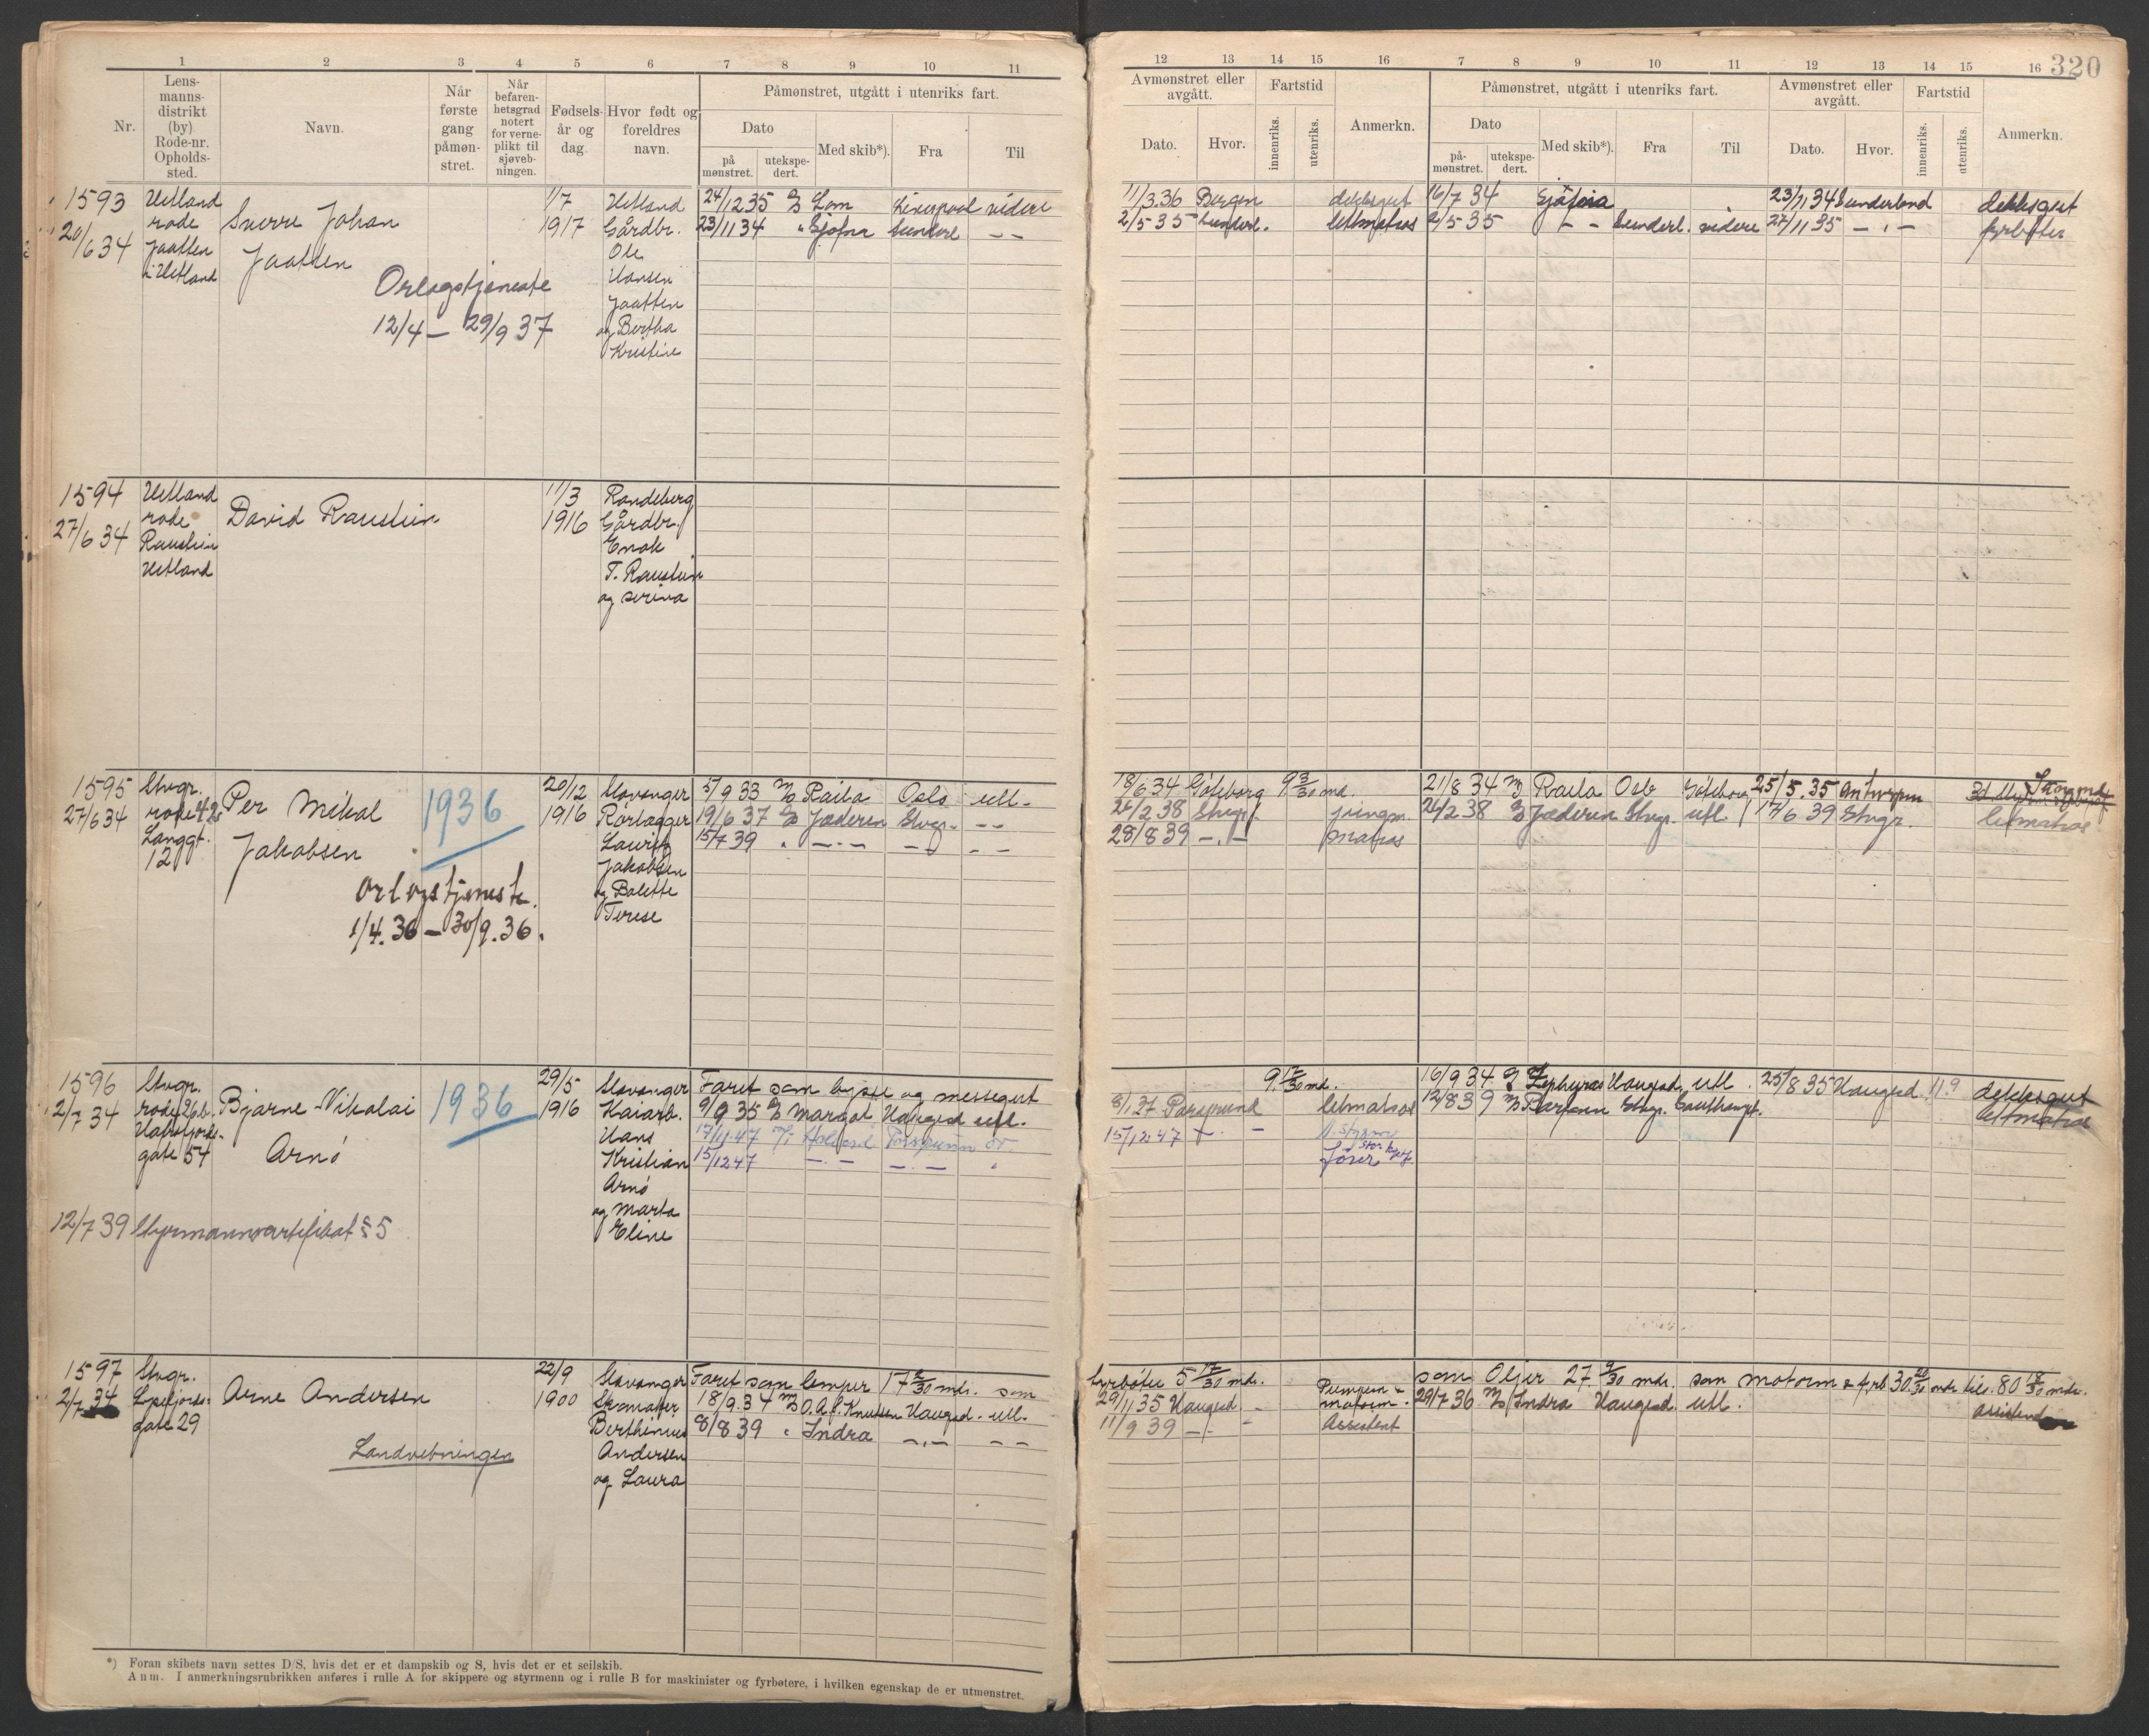 1 2 3 4 5 6 7 8 9 10 11
Nr.
Lens-
manns-
distrikt
(by)
Rode-nr.
Opholds-
sted.
Navn.
Når
første
gang
påmøn-
stret.
Når
befaren-
hetsgrad
notert
for verne-
plikt til
sjøveb-
ningen.
Fødsels-
år og
dag.
Hvor født og
foreldres
navn.
Påmønstret, utgått i utenriks fart.
Dato
på
mønstret.
utekspe-
dert.
Med skib*).
Fra
Til
1593
20/6 34
Hetland
rode
Jaatten
i Hetland
Sverre Johan
Jaatten
Orlogstjeneste
12/4 — 29/9 37
1/7
1917
Hetland
Gårdbr.
Ole
Hansen
Jaatten
og Bertha
Kristine
24/12 35 Lom Liverpool videre
23/11 34 " Gjøfna — —
1594
27/6 34
Hetland
rode
Raustein
Hetland
David Raustein
11/3
1916
Randeberg
Gårdbr.
Enok
T. Raustein
og Serina
1595
27/6 34
Stvgr.
rode 42
Langgt.
12
Per Mikal
Jakobsen
1936
Orlogstjeneste.
1/4.36 — 30/9.36.
20/12
1916
Stavanger
Rørlegger
Lauritz
Jakobsen
og Bolette
Terese
5/9 33 Raila Oslo utl.
19/6 37 Jæderen Stvgr. — —
15/7 39 " — " — — — — —
1596
2/7 34
Stvgr.
rode 26b.
Hafrsfjords-
gate 54
Bjarne Nikolai
Arnø
1936
12/7 39 Styrmannsertifikat § 5
29/5
1916
Stavanger
Kaiarb.
Hans
Kristian
Arnø
og Marta
Eline
Faret som bysse og messegut
9/9 35 Haugesd utl.
17/11 47
15/12 47 — " — — " — "
1597
2/7 34
Stvgr.
gate 29
Arne Andersen
Landvebningen
22/9
1900
Stavanger
Skomaker
Berthinius
Andersen
og Laura
Faret som lemper 17 mdr. som
18/9.34 O.A. Knutsen Haugesd. utl.
8/8 39 " Indra — " — — —
*) Foran skibets navn settes D/S, hvis det er et dampskib og S, hvis det er et seilskib.
Anm. I anmerkningsrubrikken anføres i rulle A for skippere og styrmenn og i rulle B for maskinister og fyrbøtere, i hvilken egenskap de er utmønstret.
12 13 14 15 16 7 8 9 10 11 12 13 14 15 16 320
Avmønstret eller
avgått.
Dato.
Hvor.
Fartstid
innenriks.
utenriks.
Anmerkn.
Påmønstret, utgått i utenriks fart.
Dato
på-
mønstret.
utekspe-
dert.
Med skib*).
Fra
Til
Avmønstret eller
avgått.
Dato.
Hvor.
Fartstid
innenriks.
utenriks.
Anmerkn.
11/3.36 Bergen dekksgut 16/7 34 23/11 34 Sunderland dekksgut
2/5 35 Sunderl. lettmatros 2/5 35 — — Sunderl. videre 27/11 35 — " — fyrbøter
18/6 34 Göteborg 9 3/30 md. 21/8 34 Raila Oslo Göteborg 25/5.35 Antwerpen
26/2 38 Stvgr. jungm. 26/2 38 Jæderen Stvgr. utl. 17/6 39 Stvgr. lettmatros
28/8 39 — " — Matros
16/9 34 Zephyros Haugesd. utl. 25/8 35 Haugesd 11.9 dekksgut
Porsgrund lettmatros 12/8 39 Stvgr. lettmatros
15/12 47
fyrbøter 5 17/30 mdr. som Oljer 27 mdr. som motorm. 30 mdr. tils. 80 mdr.
29/11 35 Haugesd Pumpem. 29/7 36 Indra Haugesd utl.
11/9 39 Assistent